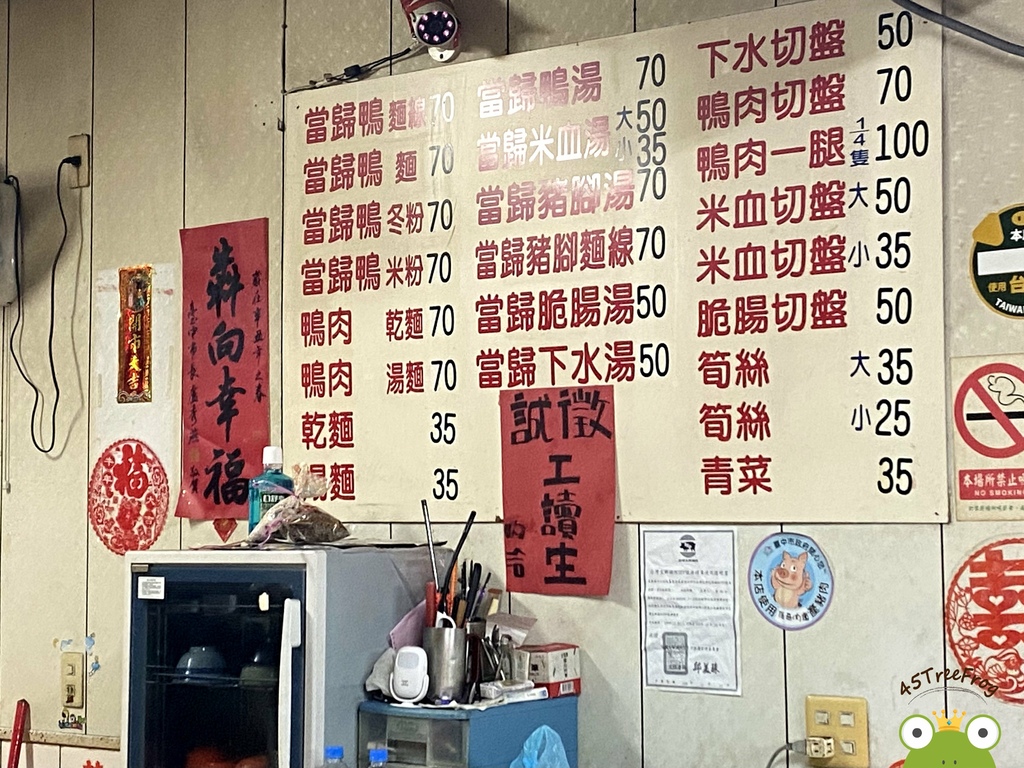 當歸鴨 麵線 70
當歸鴨 麵 70
當歸鴨 冬粉 70
當歸鴨 米粉 70
鴨肉 乾麵 70
鴨肉 湯麵 70
乾麵 35
湯麵 35
當歸鴨湯 70
當歸米血湯 大 50
小 35
當歸豬腳湯 70
當歸豬腳麵線 70
當歸脆腸湯 50
當歸下水湯 50
下水切盤 50
鴨肉切盤 70
鴨肉一腿 1/4隻 100
米血切盤 大 50
米血切盤 小 35
脆腸切盤 50
筍絲 大 35
筍絲 小 25
青菜 35
犇向幸福
開市大吉
福
誠徵
工讀生
內洽
臺中市政府關心您
本店使用
國產豬肉
本
使用 台
TAIWA
本場所禁止吸
NO SMOKING
囍
45TreeFrog